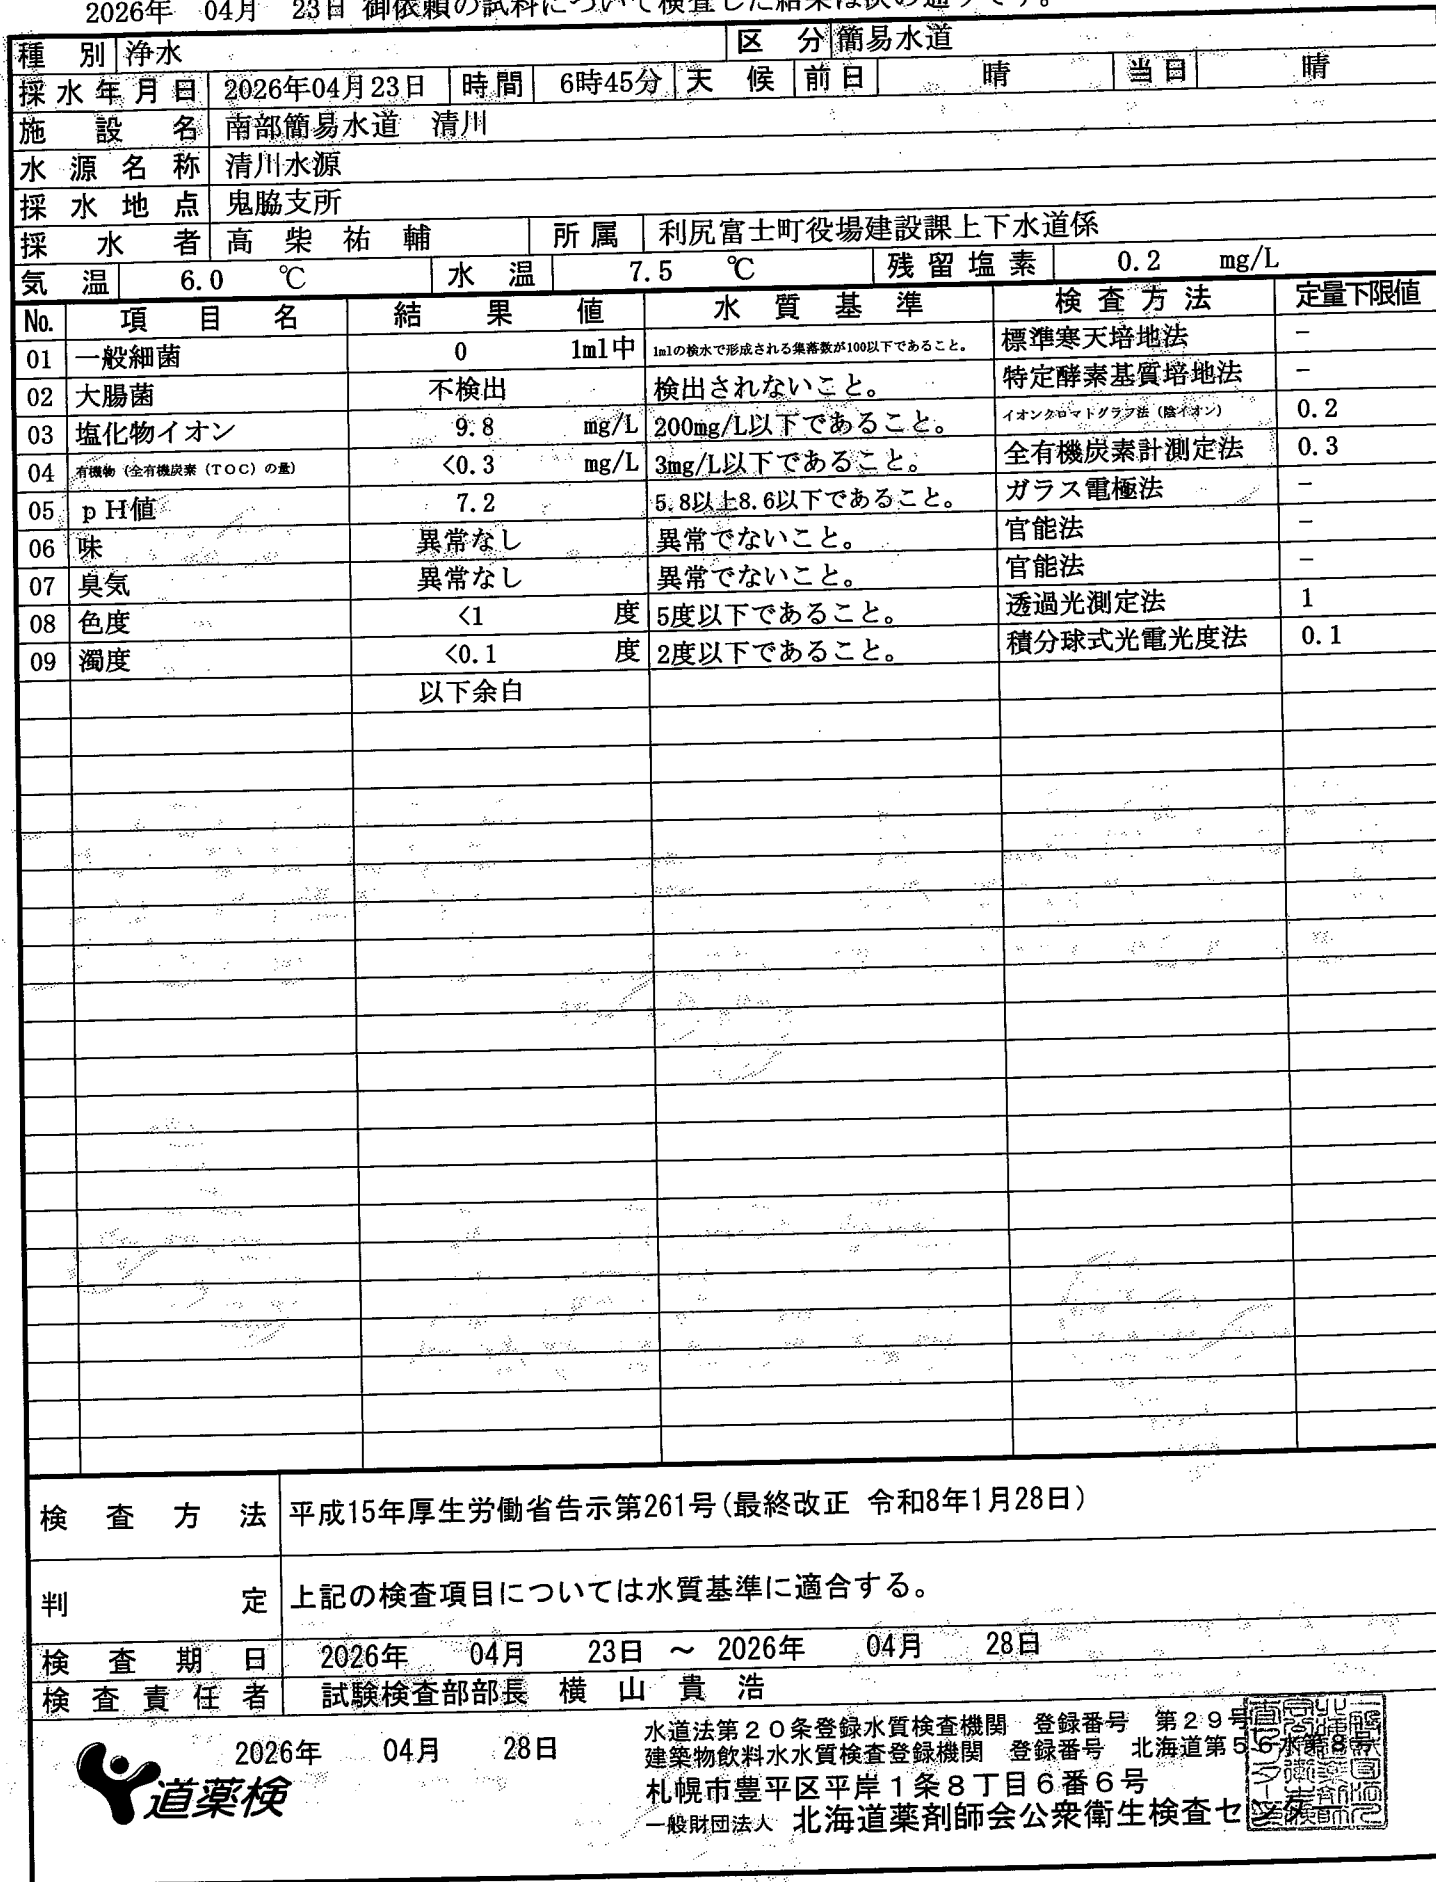 2026年 04月 23日 御依頼の試料について検査した結果は次の通りです。
種別 浄水 区分 簡易水道
採水年月日 2026年04月23日 時間 6時45分 天候 前日 晴 当日 晴
施設名 南部簡易水道 清川
水源名称 清川水源
採水地点 鬼脇支所
採水者 高柴祐輔 所属 利尻富士町役場建設課上下水道係
気温 6.0 ℃ 水温 7.5 ℃ 残留塩素 0.2 mg/L
No. 項目名 結果値 水質基準 検査方法 定量下限値
01 一般細菌 0 1ml中 1mlの検水で形成される集落数が100以下であること。 標準寒天培地法 −
02 大腸菌 不検出 検出されないこと。 特定酵素基質培地法 −
03 塩化物イオン 9.8 mg/L 200mg/L以下であること。 イオンクロマトグラフ法(陰イオン) 0.2
04 有機物(全有機炭素(TOC)の量) <0.3 mg/L 3mg/L以下であること。 全有機炭素計測定法 0.3
05 pH値 7.2 5.8以上8.6以下であること。 ガラス電極法 −
06 味 異常なし 異常でないこと。 官能法 −
07 臭気 異常なし 異常でないこと。 官能法 −
08 色度 <1 度 5度以下であること。 透過光測定法 1
09 濁度 <0.1 度 2度以下であること。 積分球式光電光度法 0.1
以下余白
検査方法 平成15年厚生労働省告示第261号(最終改正 令和8年1月28日)
判定 上記の検査項目については水質基準に適合する。
検査期日 2026年 04月 23日 ～ 2026年 04月 28日
検査責任者 試験検査部部長 横山貴浩
2026年 04月 28日
道薬検
水道法第20条登録水質検査機関 登録番号 第29号
建築物飲料水水質検査登録機関 登録番号 北海道第56水第8号
札幌市豊平区平岸1条8丁目6番6号
一般財団法人 北海道薬剤師会公衆衛生検査センター